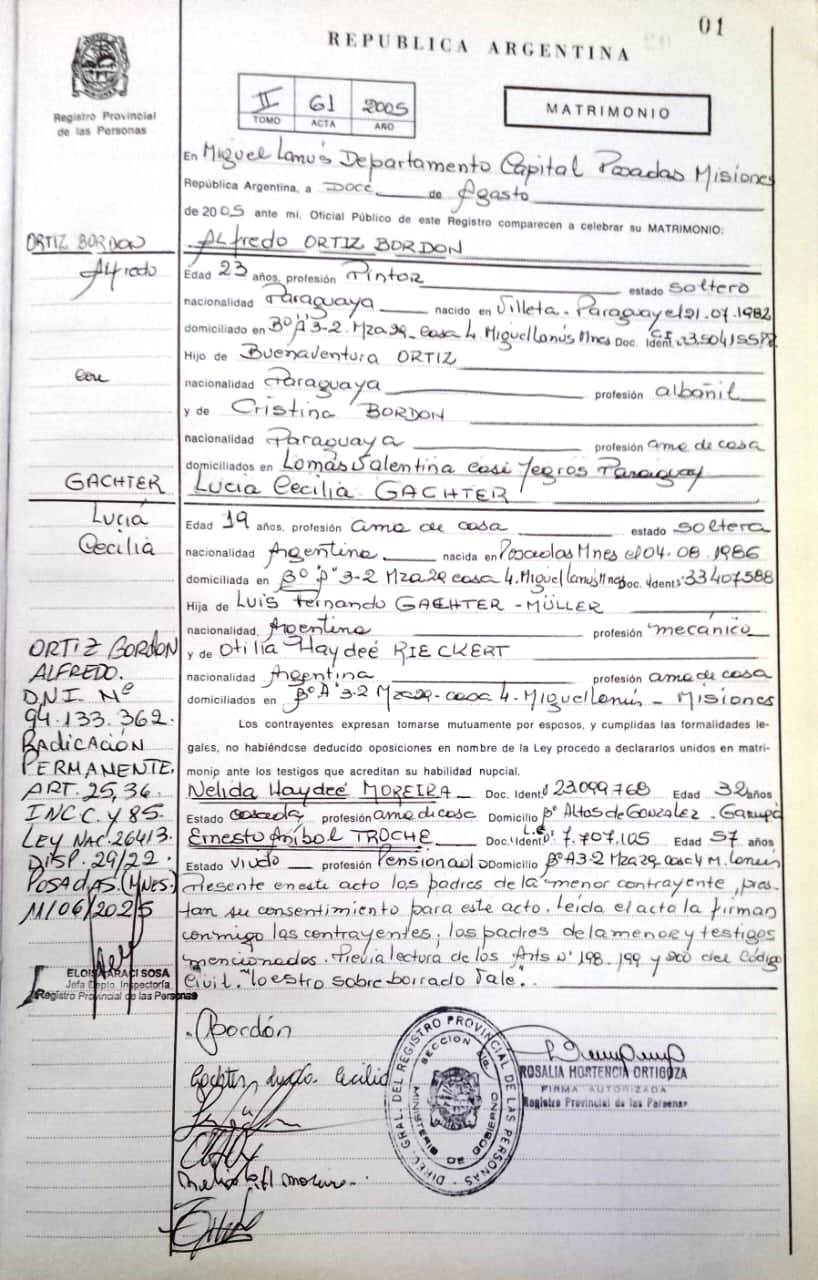 01
REPUBLICA ARGENTINA
Registro Provincial
de las Personas
II 61 2005
TOMO ACTA AÑO
MATRIMONIO
En Miguel Lanús Departamento Capital Posadas Misiones
República Argentina, a Doce de Agosto
de 2005 ante mí, Oficial Público de este Registro comparecen a celebrar su MATRIMONIO:
ORTIZ BORDON
Alfredo
con
GACHTER
Lucia
Cecilia
ORTIZ BORDON
ALFREDO.
D.N.I. Nº
94.133.362.
RADICACIÓN
PERMANENTE.
ART. 25, 36.
INC C. y 85.
LEY NAC. 26413.
DISP. 29/22.
POSADAS. (MNES.)
11/06/2025
ELOISA ARACI SOSA
Jefa Dpto. Inspectoría
Registro Provincial de las Personas
Alfredo ORTIZ BORDON
Edad 23 años, profesión Pintor estado soltero
nacionalidad Paraguaya nacido en Villeta - Paraguay el 21.07.1982
domiciliado en Bº A 3-2. Mza 29 - casa 4. Miguel Lanús Mnes Doc. Ident.
Hijo de Buenaventura ORTIZ
nacionalidad Paraguaya profesión albañil
y de Cristina BORDON
nacionalidad Paraguaya profesión ama de casa
domiciliados en Lomas Valentina casi Yegros Paraguay
Lucia Cecilia GACHTER
Edad 19 años, profesión ama de casa estado soltera
nacionalidad Argentina nacida en Posadas Mnes el 04.08.1986
domiciliada en Bº "A" 3-2 Mza 29 casa 4. Miguel Lanús Mnes Doc. Ident. 33407588
Hija de Luis Fernando GACHTER - MÜLLER
nacionalidad Argentina profesión mecánico
y de Otilia Haydeé RIECKERT
nacionalidad Argentina profesión ama de casa
domiciliados en Bº A 3-2 Mza 29 - casa 4. Miguel Lanús - Misiones
Los contrayentes expresan tomarse mutuamente por esposos, y cumplidas las formalidades le-
gales, no habiéndose deducido oposiciones en nombre de la Ley procedo a declararlos unidos en matri-
monio ante los testigos que acreditan su habilidad nupcial.
Nelida Haydeé MOREIRA Doc. Ident. 23099768 Edad 32 años
Estado casada profesión ama de casa Domicilio Bº Altos de Gonzalez - Garupá
Ernesto Aníbal TROCHE Doc. Ident. L.E. 7.707.105 Edad 57 años
Estado Viudo profesión Pensionado Domicilio Bº A 3-2 Mza 29 casa 4 M. Lanús
Presente en este acto los padres de la menor contrayente, pres-
tan su consentimiento para este acto. Leída el acta la firman
conmigo los contrayentes, los padres de la menor y testigos
mencionados. Previa lectura de los Arts Nº 198, 199 y 200 del Código
Civil.
Bordón
Gachter, Lucia Cecilia
DIREC. GRAL. DEL REGISTRO PROVINCIAL DE LAS PERSONAS
MINISTERIO DE GOBIERNO
ROSALIA HORTENCIA ORTIGOZA
FIRMA AUTORIZADA
Registro Provincial de las Personas